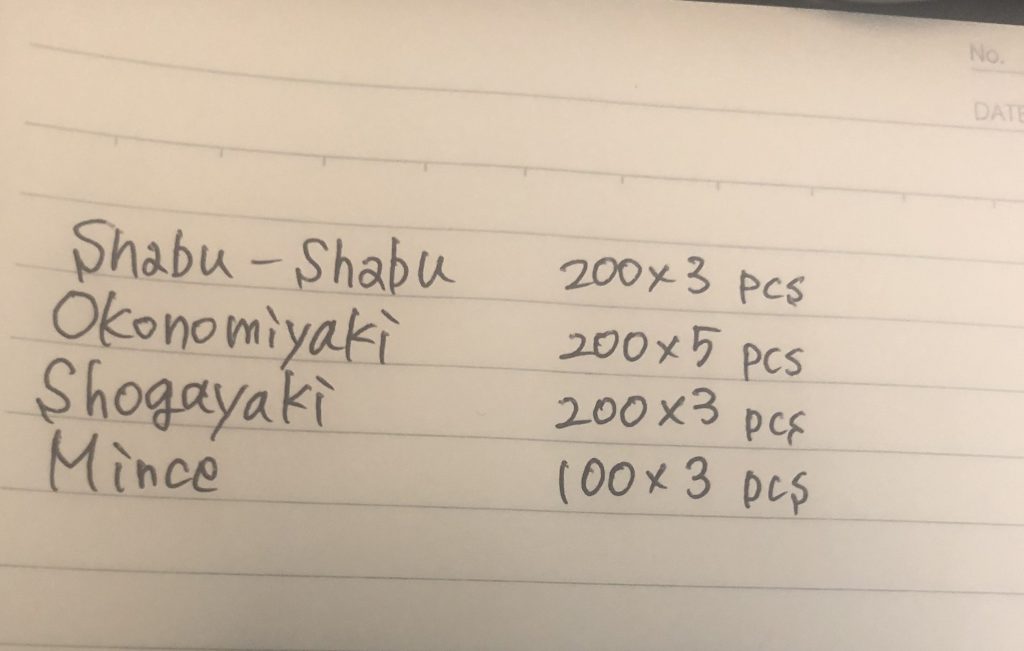 No.
DATE
Shabu-Shabu 200x3 pcs
Okonomiyaki 200x5 pcs
Shogayaki 200x3 pcs
Mince 100x3 pcs